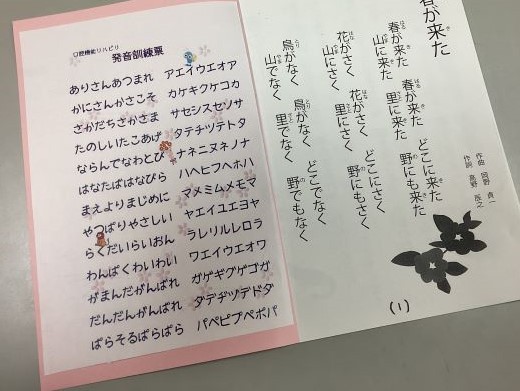 口腔機能リハビリ
発音訓練票
ありさんあつまれ アエイウエオア
かにさんがさこそ カケキクケコカ
さかだちさかさま サセシスセソサ
たのしいたこあげ タテチツテトタ
ならんでなわとび ナネニヌネノナ
はなたばはなびら ハヘヒフヘホハ
まえよりまじめに マメミムメモマ
やっぱりやさしい ヤエイユエヨヤ
らくだいらいおん ラレリルレロラ
わんぱくわいわい ワエイウエオワ
がまんだがんばれ ガゲギグゲゴガ
だんだんがんばれ ダデヂヅデドダ
ぱらそるぱらぱら パペピプペポパ
春が来た
作詞 高野 辰之
作曲 岡野 貞一
春が来た 春が来た どこに来た
山に来た 里に来た 野にも来た
花がさく 花がさく どこにさく
山にさく 里にさく 野にもさく
鳥がなく 鳥がなく どこでなく
山でなく 里でなく 野でもなく
(1)